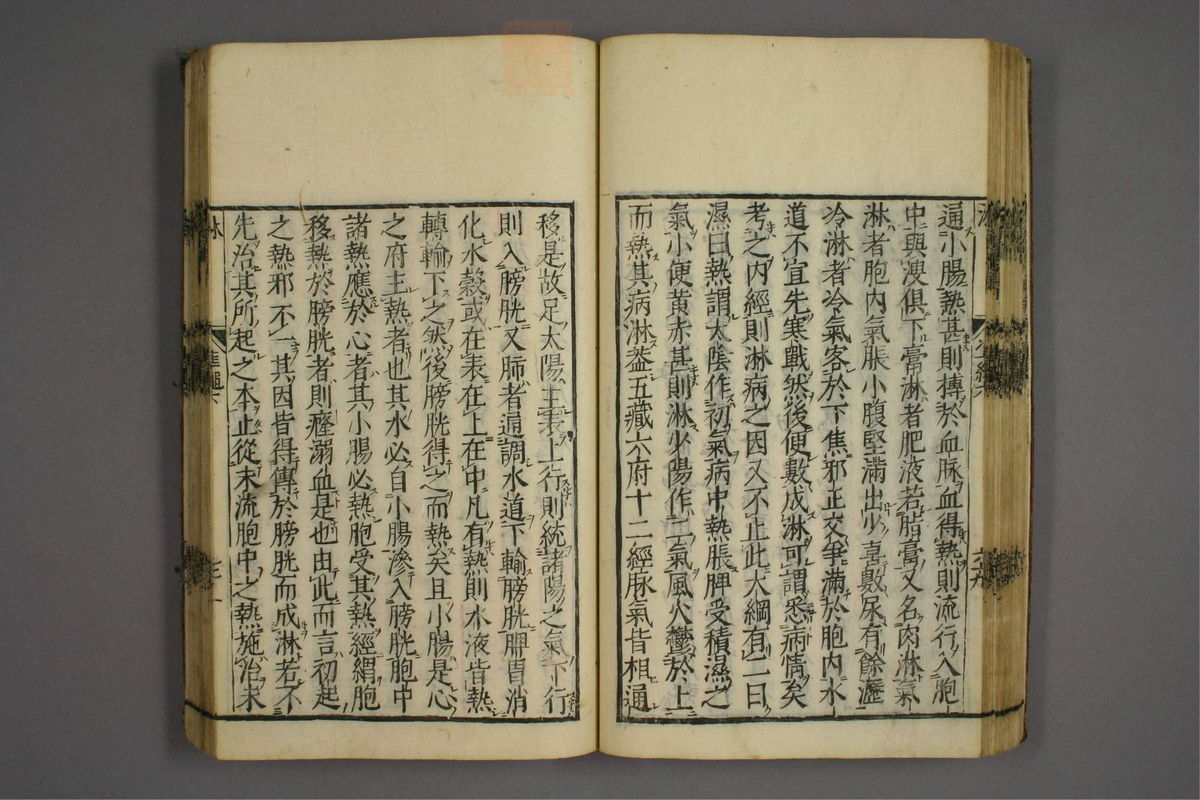 通小腸熱甚則搏於血脉血得熱則流行入胞
中與溲俱下膏淋者肥液若脂膏又名肉淋氣
淋者胞內氣脹小腹堅滿出少喜數尿有餘瀝
冷淋者冷氣客於下焦邪正交爭滿於胞內水
道不宜先寒戰然後便數成淋可謂悉病情矣
考之內經則淋病之因又不止此大綱有二曰
濕曰熱謂太陰作初氣病中熱脹脾受積濕之
氣小便黃赤甚則淋少陽作二氣風火鬱於上
而熱其病淋蓋五藏六府十二經脉氣皆相通
移是故足太陽主裏上行則統諸陽之氣下行
則入膀胱又肺者通調水道下輸膀胱脾胃消
化水穀或在表在上在中凡有熱則水液皆熱
轉輸下之然後膀胱得之而熱矣且小腸是心
之府主熱者也其水必自小腸滲入膀胱胞中
諸熱應於心者其小腸必熱胞受其熱經謂胞
移熱於膀胱者則癃溺血是也由此而言初起
之熱邪不一其因皆得傳於膀胱而成淋若不
先治其所起之本止從末流胞中之熱施治未